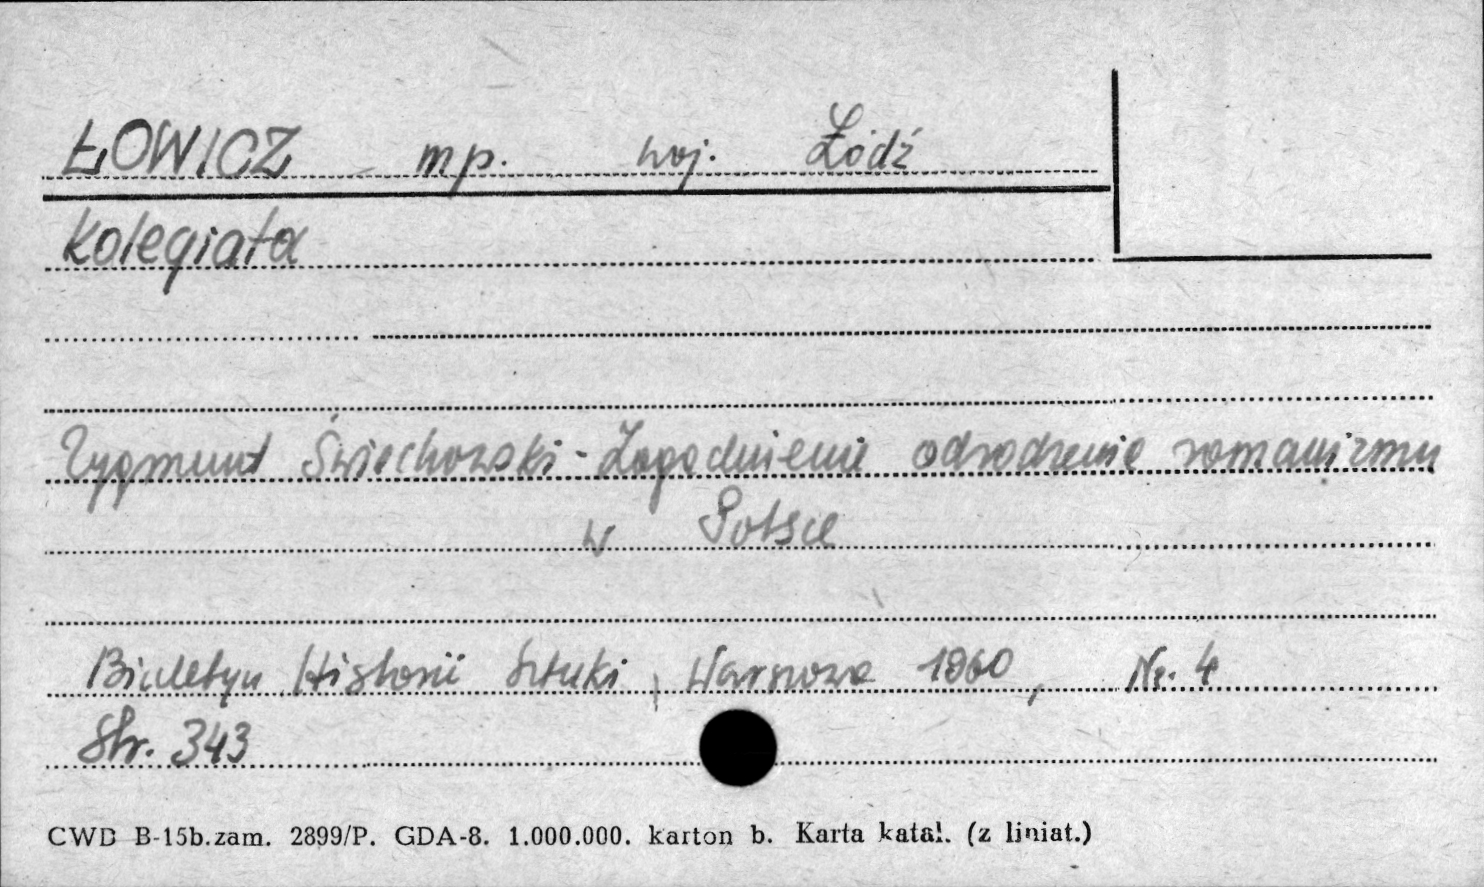 ŁOWICZ mp. woj. Łódź
Kolegiata
Zygmunt Świechowski - Zagadnienie odrodzenie romanizmu
w Polsce
Biuletyn Historii Sztuki, Warszawa 1960, Nr. 4
Str. 343
CWD B-15b.zam. 2899/P. GDA-8. 1.000.000. karton b. Karta katal. (z liniat.)